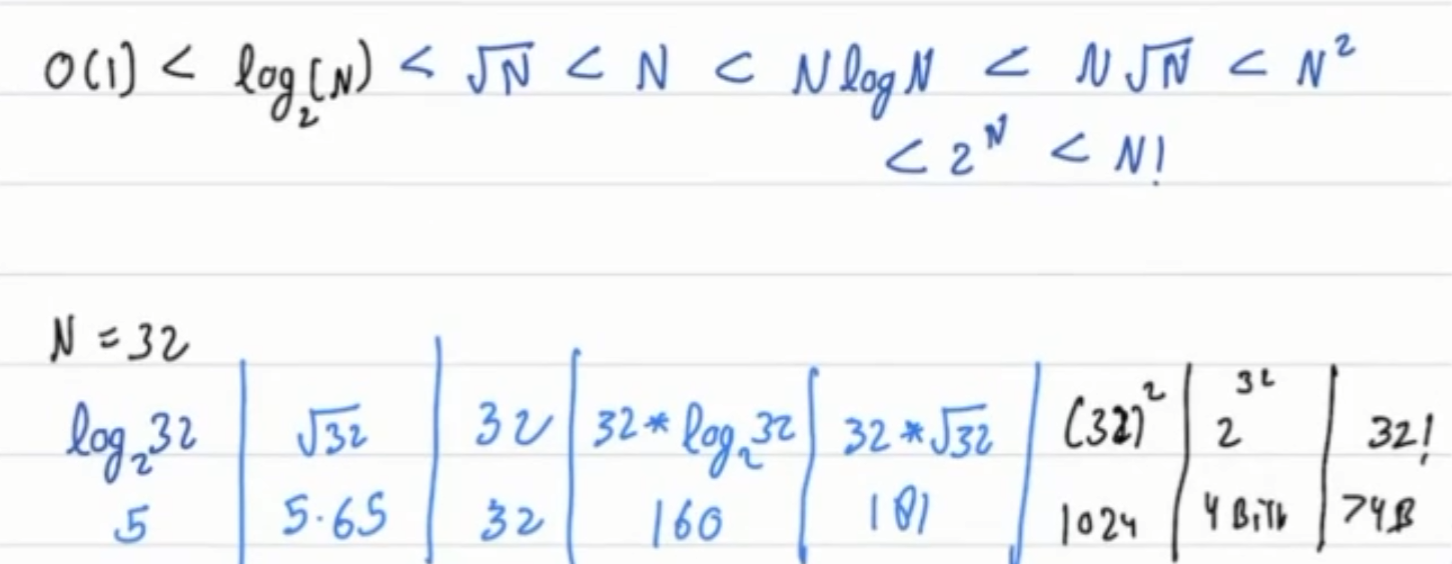 O(1) < log₂(N) < √N < N < N log N < N√N < N²
< 2ᴺ < N!
N = 32
log₂32 | √32 | 32 | 32 * log₂32 | 32 * √32 | (32)² | 2³² | 32!
5 | 5.65 | 32 | 160 | 181 | 1024 | 4 | 74B